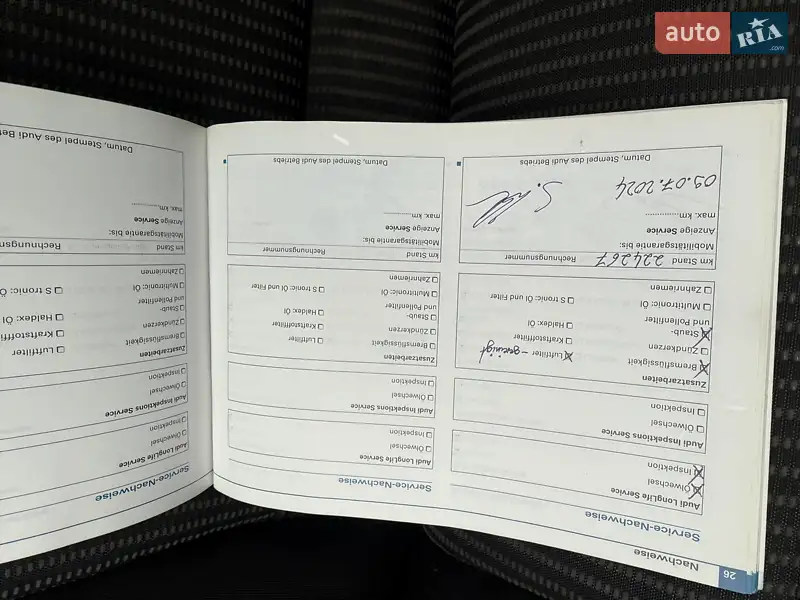 auto RIA .com
26
Nachweise
Service-Nachweise
Audi LongLife Service
Ölwechsel
Inspektion
Audi Inspektions Service
Ölwechsel
Inspektion
Zusatzarbeiten
Bremsflüssigkeit
Luftfilter - gereinigt
Zündkerzen
Kraftstofffilter
Staub-
und Pollenfilter
Haldex: Öl
Multitronic: Öl
S tronic: Öl und Filter
Zahnriemen
km Stand 224267 Rechnungsnummer
Mobilitätsgarantie bis:
Anzeige Service
max. km
09.07.2024
Datum, Stempel des Audi Betriebs
Service-Nachweise
Audi LongLife Service
Ölwechsel
Inspektion
Audi Inspektions Service
Ölwechsel
Inspektion
Zusatzarbeiten
Bremsflüssigkeit
Luftfilter
Zündkerzen
Kraftstofffilter
Staub-
und Pollenfilter
Haldex: Öl
Multitronic: Öl
S tronic: Öl und Filter
Zahnriemen
km Stand Rechnungsnummer
Mobilitätsgarantie bis:
Anzeige Service
max. km
Datum, Stempel des Audi Betriebs
Service-Nachweise
Audi LongLife Service
Ölwechsel
Inspektion
Audi Inspektions Service
Ölwechsel
Inspektion
Zusatzarbeiten
Bremsflüssigkeit
Luftfilter
Zündkerzen
Staub-
und Pollenfilter
Haldex: Öl
Multitronic: Öl
S tronic: Ö
Zahnriemen
km Stand
Mobilitätsgarantie bis:
Anzeige Service
max. km
Datum, Stempel des Audi Bet